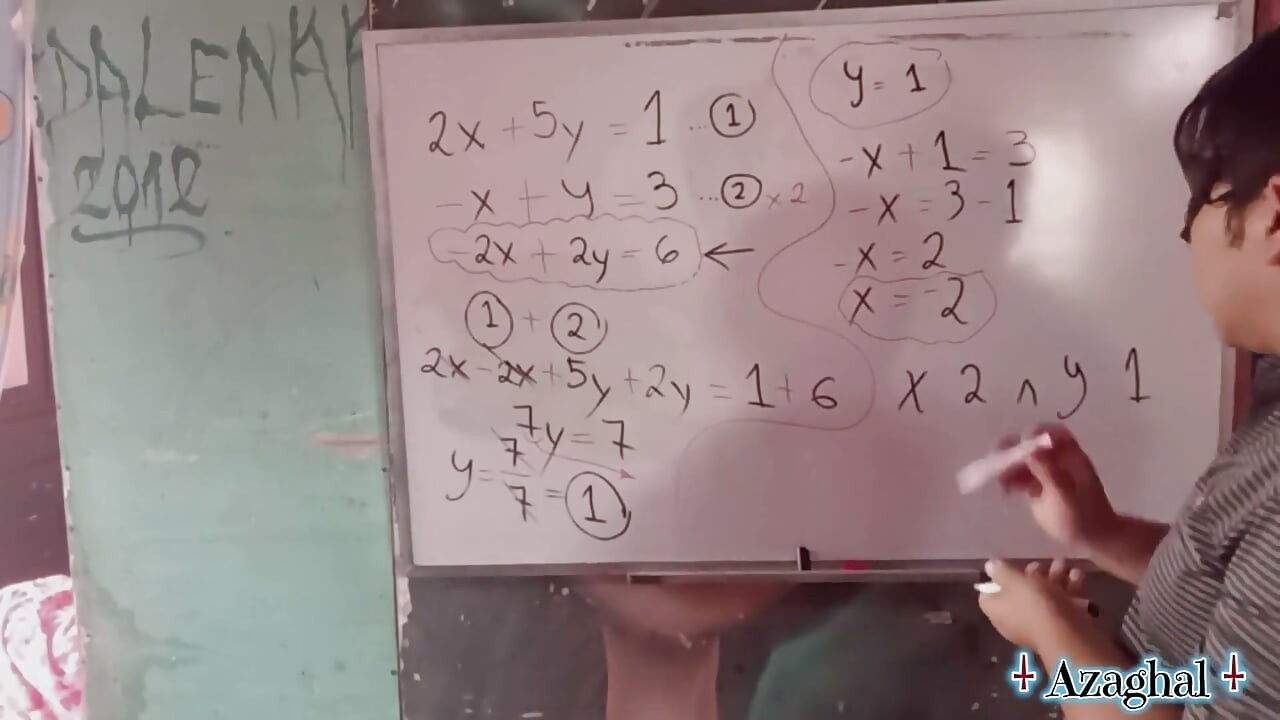 DALENAH
2012
2x + 5y = 1 ... ①
-x + y = 3 ... ② x 2
-2x + 2y = 6 ←
① + ②
2x - 2x + 5y + 2y = 1 + 6
7y = 7
y = 7/7 = 1
y = 1
-x + 1 = 3
-x = 3 - 1
-x = 2
x = -2
x 2 ∧ y 1
Azaghal